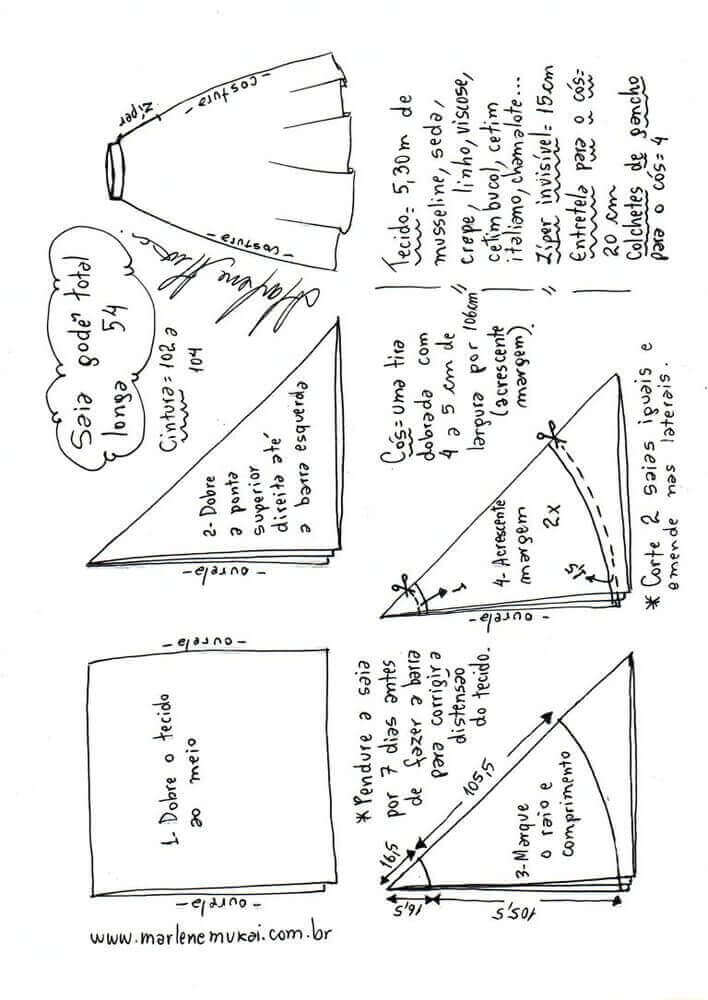 www.marlenemukai.com.br
- ourela -
1- Dobre o tecido
ao meio
- ourela -
- ourela -
2- Dobre
a ponta
superior
direita até
a barra esquerda
Saia godê total
longa 54
Cintura = 102 a
104
zíper
- costura -
- costura -
Marlene Mukai
16,5
105,5
16,5
105,5
3- Marque
o raio e
comprimento
* Pendure a saia
por 7 dias antes
de fazer a barra
para corrigir a
distensão
do tecido.
- ourela -
1
1,5
4- Acrescente
margem
2x
* Corte 2 saias iguais e
emende nas laterais.
Cós = uma tira
dobrada com
4 a 5 cm de
largura por 106cm
(acrescente
margem).
Tecido = 5,30m de
musseline, seda,
crepe, linho, viscose,
cetim bucol, cetim
italiano, chamalote...
Zíper invisível = 15cm
Entretela para o cós =
20 cm
Colchetes de gancho
para o cós = 4